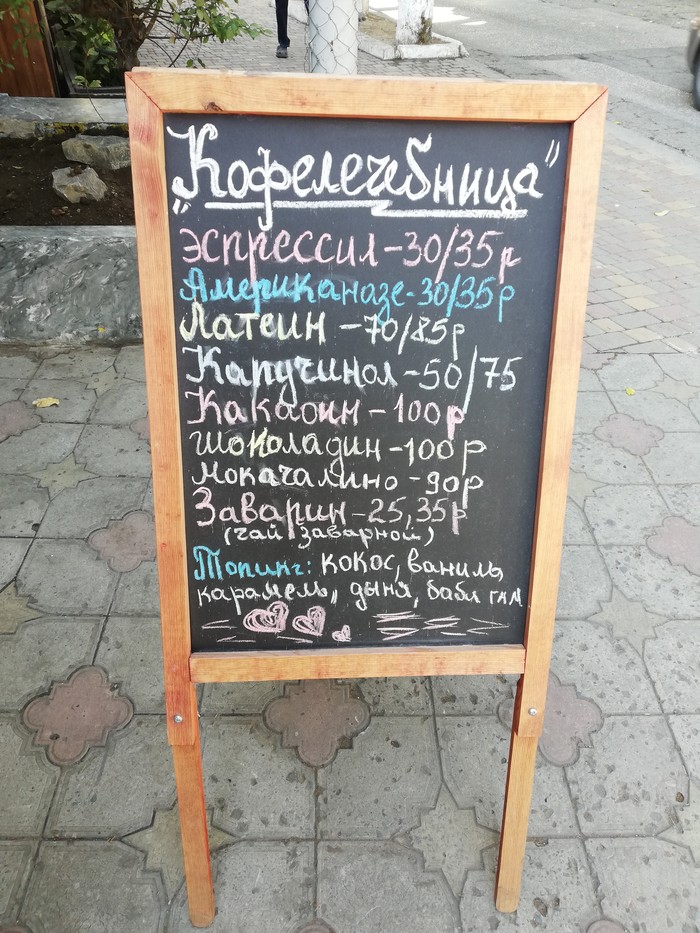 "Кофелечебница"
Эспрессил-30/35р
Американазе-30/35р
Латеин-70/85р
Капучинол-50/75
Какаоин-100р
Шоколадин-100р
Мокачалино-90р
Заварин-25,35р
(чай заварной)
Топинг: кокос, ваниль,
карамель, дыня, бабл гам